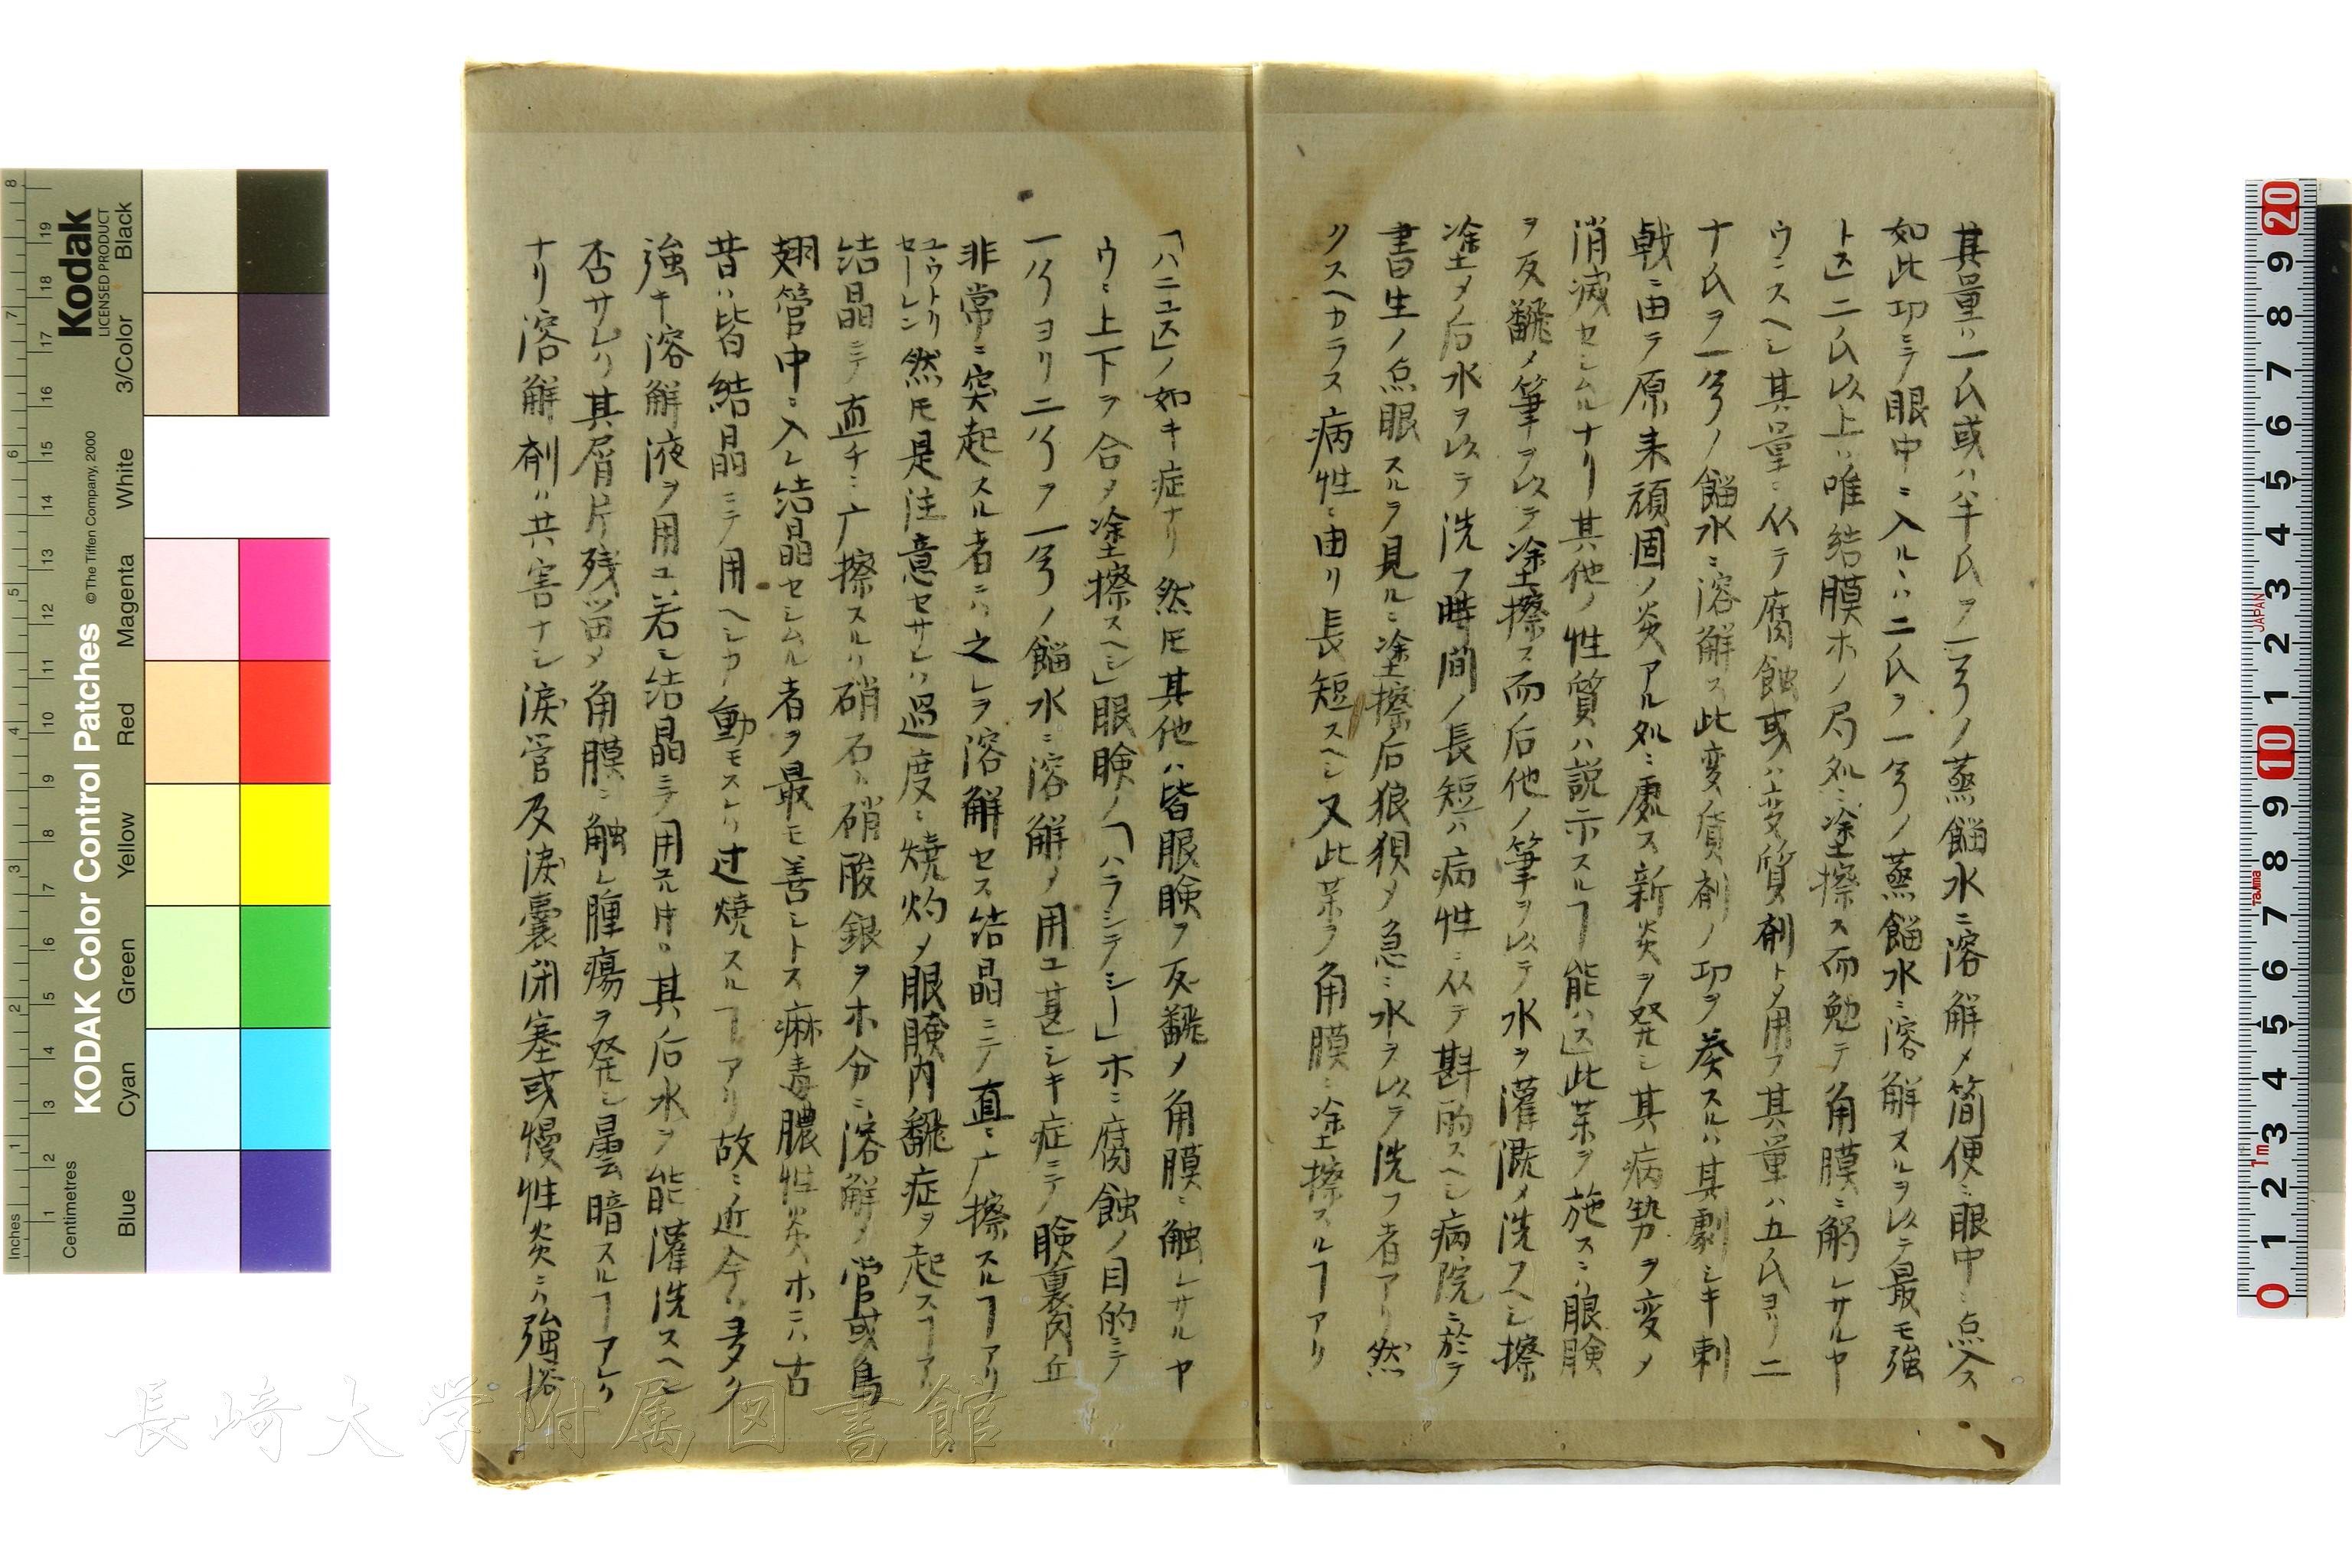 其量ハ一氏或ハ半氏ヲ一兮ノ蒸餾水ニ溶解メ簡便ニ眼中ニ点入ス
如此功ニテ眼中ニ入ルニハ二氏ヲ一兮ノ蒸餾水ニ溶解スルヲ以テ最モ強
トス」二氏以上ハ唯結膜ホノ局処ニ塗擦ス而勉テ角膜ニ觸レサルヤ
ウニスヘシ其量ニ从テ腐蝕或ハ変質剤トメ用フ其量ハ五氏ヨリ二
十氏ヲ一兮ノ餾水ニ溶解ス此変質剤ノ功ヲ奏スルハ其劇シキ刺
戟ニ由テ原来頑固ノ炎アル処ニ處ス新炎ヲ発シ其病勢ヲ変メ
消滅セシムルナリ其他ノ性質ハ説示スルヿ能ハス」此薬ヲ施スニハ眼瞼
ヲ反飜メ筆ヲ以テ塗擦ス而后他ノ筆ヲ以テ水ヲ灌漑メ洗フヘシ擦
塗メノ后水ヲ以テ洗フ時間ノ長短ハ病性ニ从テ斟酌スヘシ病院ニ於テ
書生ノ点眼スルヲ見ルニ塗擦ノ后狼狽メ急ニ水ヲ以テ洗フ者アリ然
リスヘカラス病性ニ由リ長短スヘシ又此薬ヲ角膜ニ塗擦スルヿアリ
「ハニユス」ノ如キ症ナリ然𪜈其他ハ皆眼瞼ヲ反飜メ角膜ニ触レサルヤ
ウニ上下ヲ合メ塗擦スヘシ」眼瞼ノ「ハラシテシー」ホニ腐蝕ノ目的ニテ
一兮ヨリ二兮ヲ一兮ノ餾水ニ溶解メ用ユ甚シキ症ニテ瞼裏肉丘
非常ニ突起スル者ニハ之レヲ溶解セス結晶ニテ直ニ广擦スルヿアリ
ユウトリ
セーレン然𪜈是注意セサレハ過度ニ焼灼メ眼瞼内飜症ヲ起スヿアリ
結晶ニテ直チニ广擦スルハ硝石ト硝酸銀ヲホ分ニ溶解メ管或鳥
翅管中ニ入レ結晶セシムル者ヲ最モ善シトス痳毒膿性炎ホニハ古
昔ハ皆結晶ニテ用ヘシカ動モスレハ过焼スルヿアリ故ニ近今ハ多ク
強キ溶解液ヲ用ユ若シ結晶ニテ用ユル片ハ其后水ヲ能灌洗スヘシ
否サレハ其屑片残留メ角膜ニ触レ腫瘍ヲ発シ曇暗スルヿアレハ
ナリ溶解剤ハ共害ナシ涙管及涙嚢閉塞或慢性炎ニハ強溶
KODAK Color Control Patches
©The Tiffen Company, 2000
Kodak
LICENSED PRODUCT
Inches
Centimetres
Blue
Cyan
Green
Yellow
Red
Magenta
White
3/Color
Black
JAPAN
Tajima
1m
長崎大学附属図書館